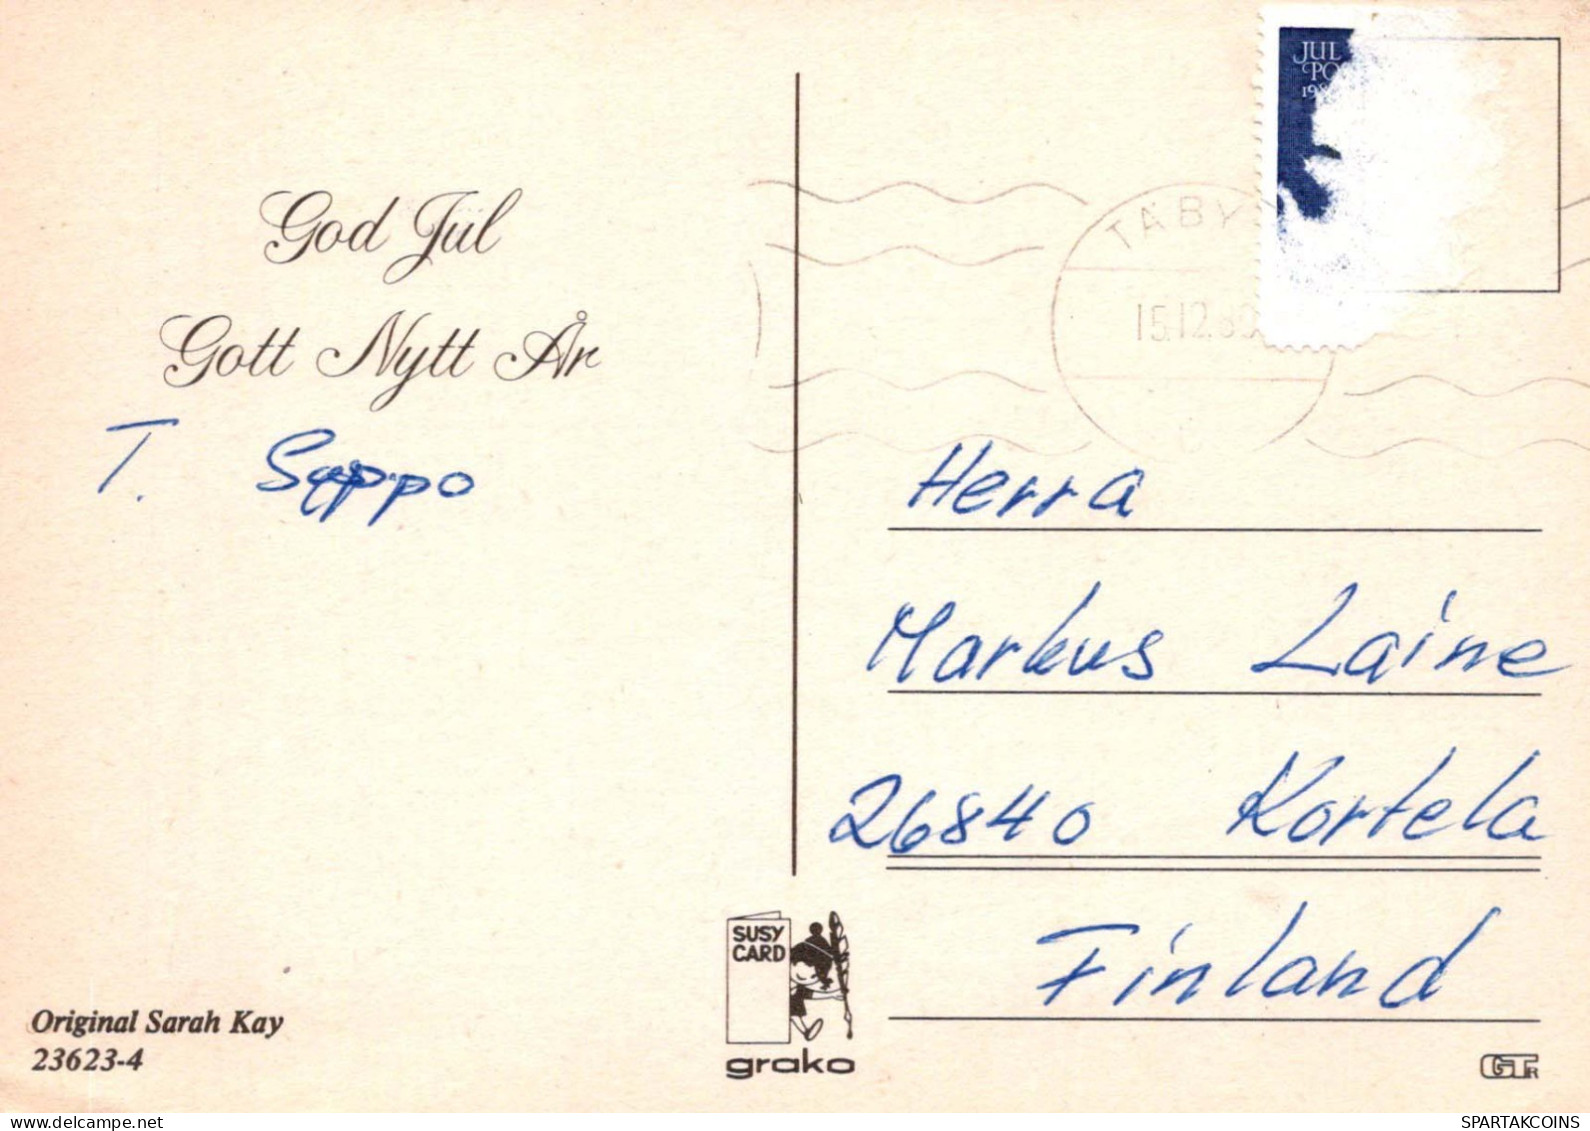 God Jul
Gott Nytt År
T. Seppo
JUL
PO
198
TÄBY
15.12.80
Herra
Markus Laine
26840 Kortela
Finland
SUSY
CARD
grako
Original Sarah Kay
23623-4
SPARTAKCOINS